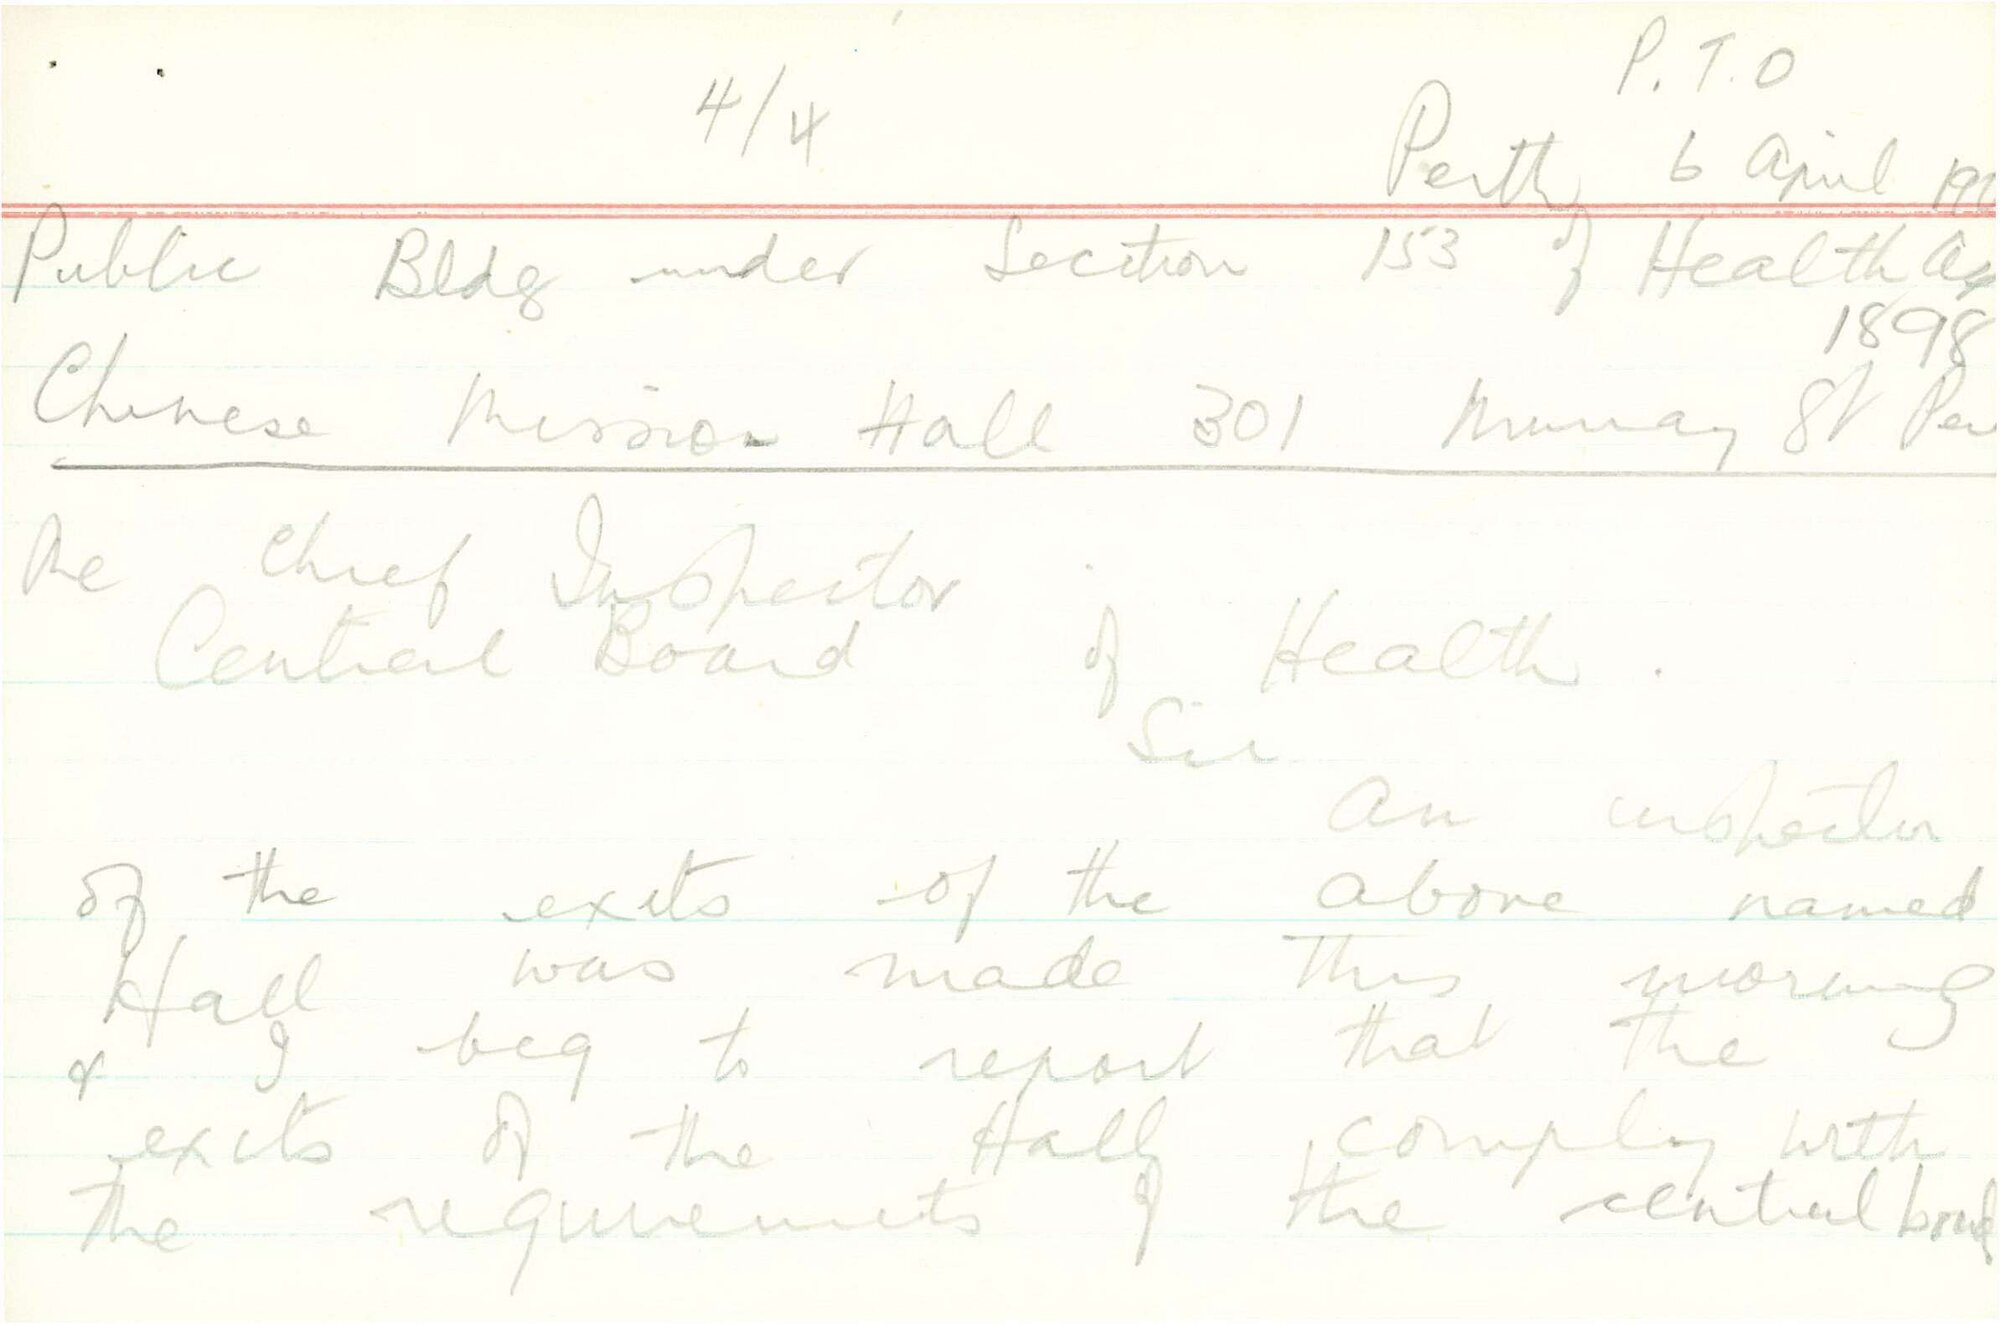 P.T.O
4/4
Perth 6 April 19
Public Bldg under Section 153 of Health
1898
Chinese Mission Hall 301 Murray St
The Chief Inspector
Central Board of Health.
Sir
An
of the exits of the above named
Hall was made this morning
& I beg to report that the
exits of the Hall comply with
the requirements of the central board